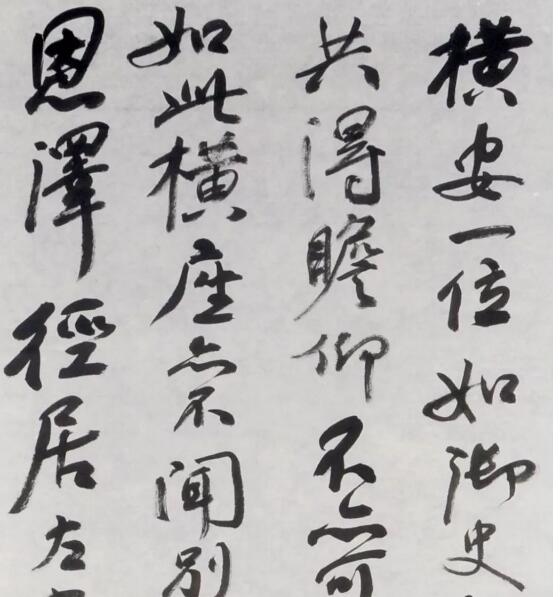 横安一位如御史
共得瞻仰不亦可
如此横座亦不聞別
恩澤徑居左